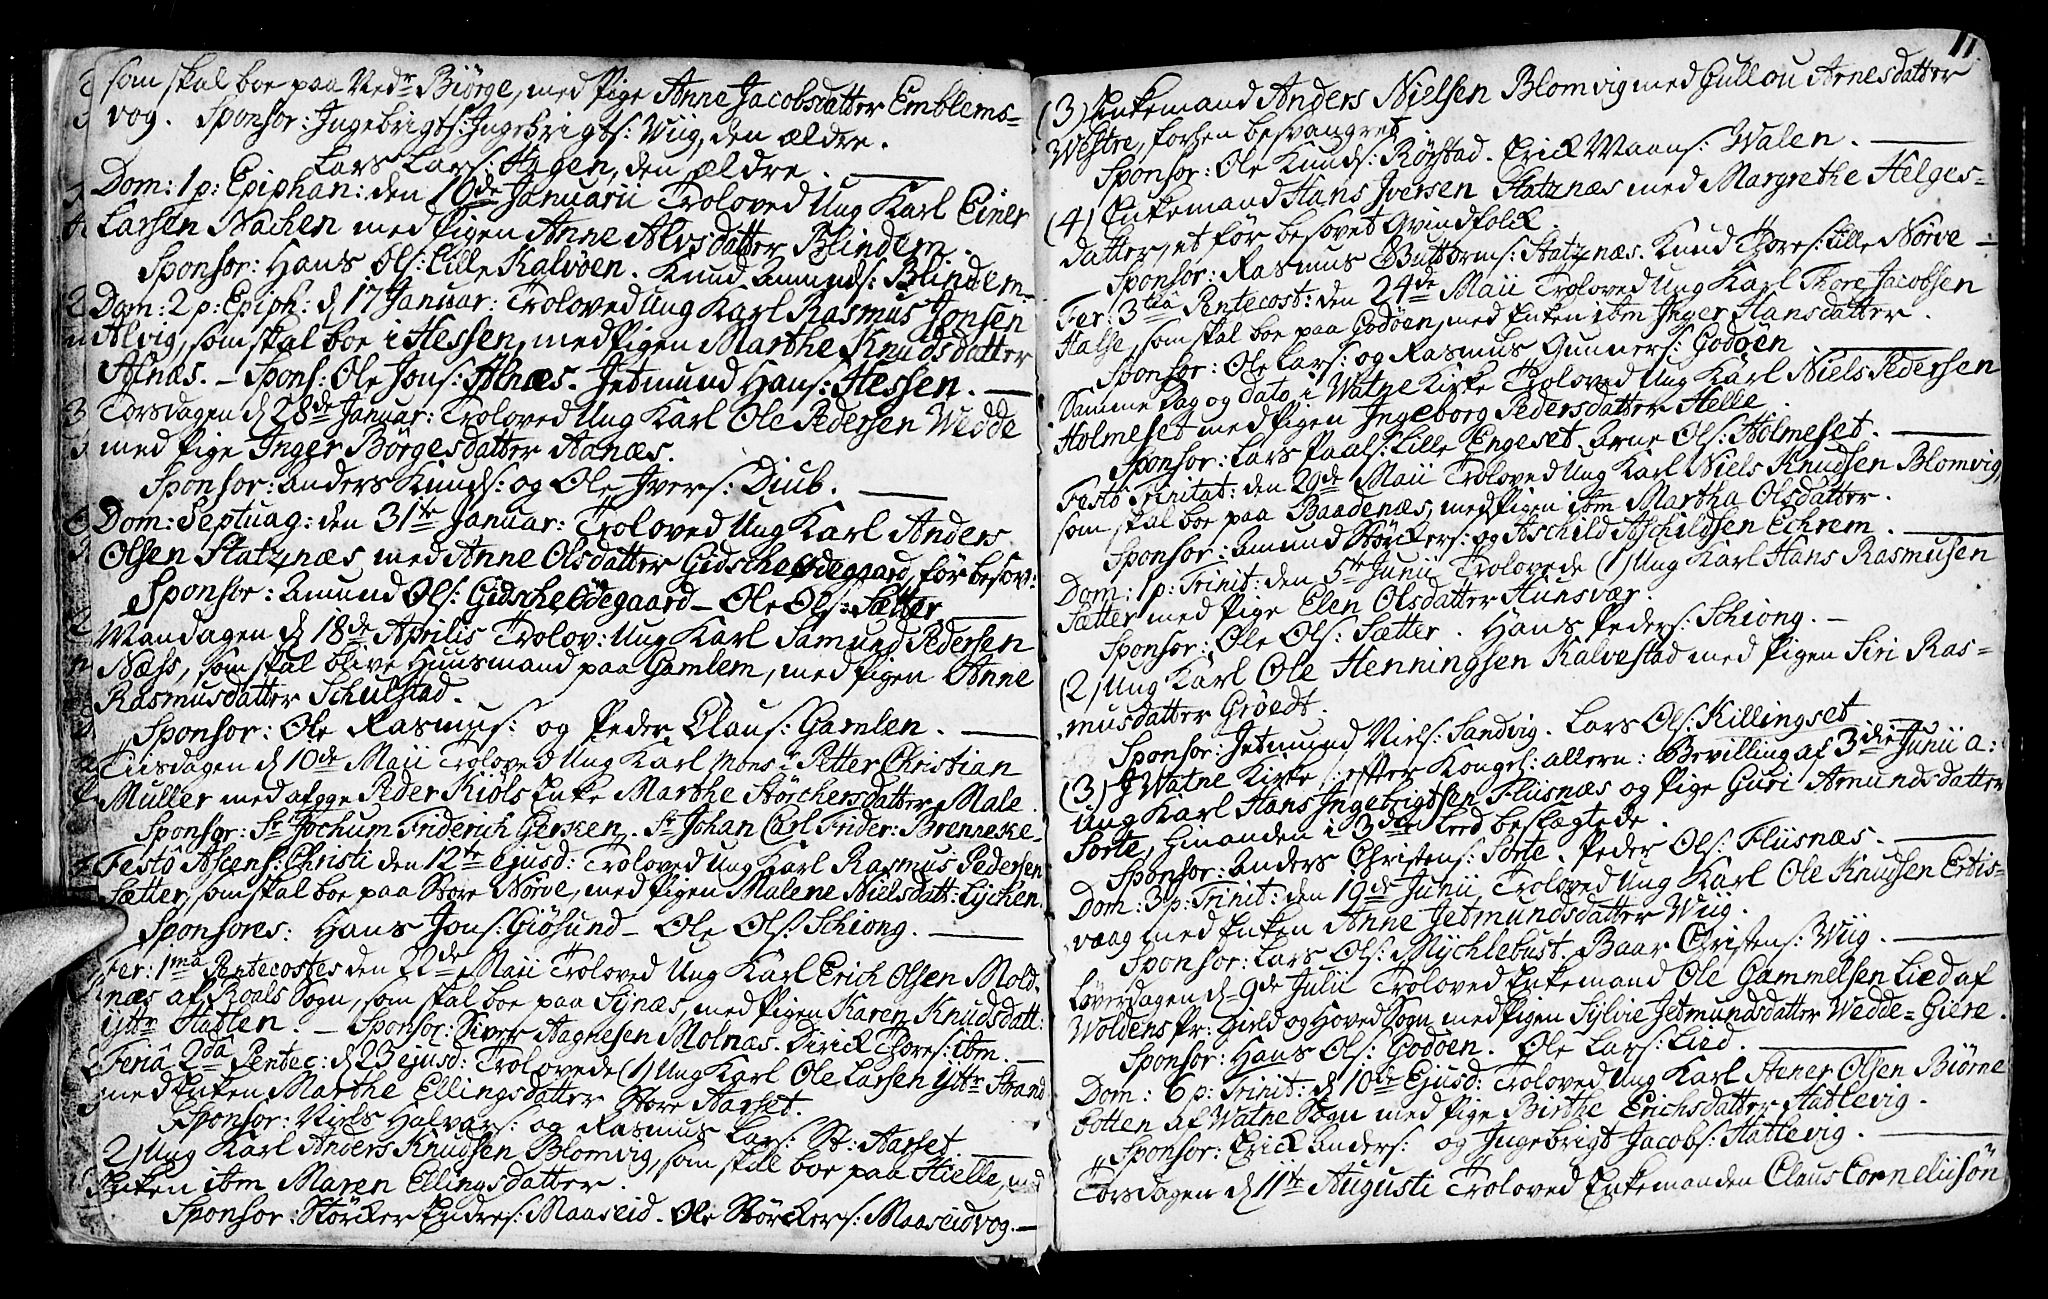 som skal boe paa Nedr Biørge, med Pige Anne Jacobsdatter Emblems-
vog. Sponsor: Ingebrigt Ingebrigts: Wiig, den ældre.
Lars Lars: Hagen, den ældre.
Dom: 1 p: Epiphan: den 10de Januarii Troloved Ung Karl Einer
Larsen Nachen med Pigen Anne Alvsdatter Blindem.
Sponsor: Hans Ols: Lille Kalvøen. Knud Amunds: Blindem.
Dom: 2 p: Epiph: d 17 Januar: Troloved Ung Karl Rasmus Jonsen
Alvig, som skal boe i Hessen, med Pigen Marthe Knudsdatter
Alnæs. - Spons: Ole Jons: Alnæs. Jetmund Hans: Hessen.
Torsdagen d 28de Januar: Troloved Ung Karl Ole Pedersen Wedde
med Pige Inger Borgesdatter Aanæs.
Sponsor: Anders Knuds: og Ole Ivers: Diub.
Dom: Septuag: den 31te Januar: Troloved Ung Karl Anders
Olsen Statznæs med Anne Olsdatter Gidsche Ødegaard, før besov:
Sponsor: Amund Ols: Gidsche Ødegaard - Ole Ols: Sætter
Mandagen d 18de Aprilis Trolov: Ung Karl Samuel Pedersen
Næss, som skal blive Huusmand paa Gamlem, med Pigen Anne
Rasmusdatter Schulstad.
Sponsor: Ole Rasmus: og Peder Claus: Gamlen.
Tiisdagen d 10de Maii Troloved Ung Karl Monsr Petter Christian
Muller med afgge Peder Kiøls Enke Marthe Størchersdatter Male.
Sponsor: Sr Jochum Friderich Gersken. Sr Johan Carl Frider: Brenneke-
Festo Ascens: Christi den 12te Ejusd: Troloved Ung Karl Rasmus Pedersen
Sætter, som skal boe paa Store Nørve, med Pigen Malene Nielsdatt: Lycken.
Sponsores: Hans Jons: Giøsund - Ole Ols: Schiong.
Fer: 1ma Pentecostes den 22de Maii Troloved Ung Karl Erich Olsen Mold-
næs af Roals Sogn, som skal boe paa Synæs, med Pigen Karen Knudsdatt:
Yttr Hatlen. - Sponsor: Siver Aagnesen Molnæs. Dirick Thores: ibm.
Feria 2da Pentec: d 23 ejusd: Trolovede (1) Ung Karl Ole Larsen Yttr Strand
med Enken Marthe Ellingsdatter Store Aarset.
Sponsor: Niels Halvars: og Rasmus Lars: St: Aarset
2) Ung Karl Anders Knudsen Blomvig, som skal boe paa Hielle, med
Enken ibm Maren Ellingsdatter.
Sponsor: Størcker Endres: Maaseid. Ole Størckers: Maaseidvog.
11
(3) Enkemand Anders Nielsen Blomvig med Gullou Arnesdatter
Westre, forhen besvangret
Sponsor: Ole Knuds: Rørstad. Erick Maans: Walen.
(4) Enkemand Hans Iversen Statznæs med Margrethe Helges-
datter, et før besovet Qvindfolk
Sponsor: Rasmus Guttorms: Statznæs. Knud Thores: Lille Nørve
Fer: 3tia Pentecost: den 24de Maii Troloved Ung Karl Thore Jacobsen
Halse, som skal boe paa Godøen, med Enken ibm Inger Hansdatter.
Sponsor: Ole Lars: og Rasmus Gunners: Godøen
Samme Dag og dato i Watne Kirke Troloved Ung Karl Niels Pedersen
Holmeset med Pigen Ingeborg Pedersdatter Helle.
Sponsor: Lars Paals: Lille Engeset. Arne Ols: Holmeset.
Festo Trinitat: den 29de Maii Troloved Ung Karl Niels Knudsen Blomvig,
som skal boe paa Baadenæs, med Pigen ibm Martha Olsdatter.
Sponsor: Amund Størckers: og Aschild Aschildsen Echrem.
Dom: 1 p: Trinit: den 5te Junii Trolovede (1) Ung Karl Hans Rasmusen
Sætter med Pige Elen Olsdatter Hunsvær.
Sponsor: Ole Ols: Sætter. Hans Peders: Schiong.
(2) Ung Karl Ole Henningsen Kalvestad med Pigen Siri Ras-
musdatter Grøedt.
Sponsor: Jetmund Niels: Sandvig. Lars Ols: Killingset
(3) I Watne Kirke, efter Kongel: allern: Bevilling af 3die Junii a:
Ung Karl Hans Ingebrigtsen Fliisnæs og Pige Guri Amundsdatter
Sorte, hinanden i 3die Leed beslagtede.
Sponsor: Anders Christens: Sorte. Peder Ols: Fliisnæs.
Dom: 3 p: Trinit: den 19de Junii Troloved Ung Karl Ole Knudsen Erdis-
vaag med Enken Anne Jetmundsdatter Wiig.
Sponsor: Lars Ols: Mychlebust. Baar Christens: Wiig.
Løverdagen d 9de Julii Troloved Enkemand Ole Gammelsen Lied af
Woldens Pr: Gield og Hoved Sogn med Pigen Sylvie Jetmundsdatter Wedde-Giere.
Sponsor: Hans Ols: Godøen. Ole Lars: Lied.
Dom: 6 p: Trinit: d 10de Ejusd: Troloved Ung Karl Stener Olsen Biørne
botten af Watne Sogn med Pige Birthe Erichsdatter Hatlevig.
Sponsor: Erick Anders: og Ingebrigt Jacobs: Hattevig.
Torsdagen d 11te Augusti Troloved Enkemanden Claus Corneliisøn